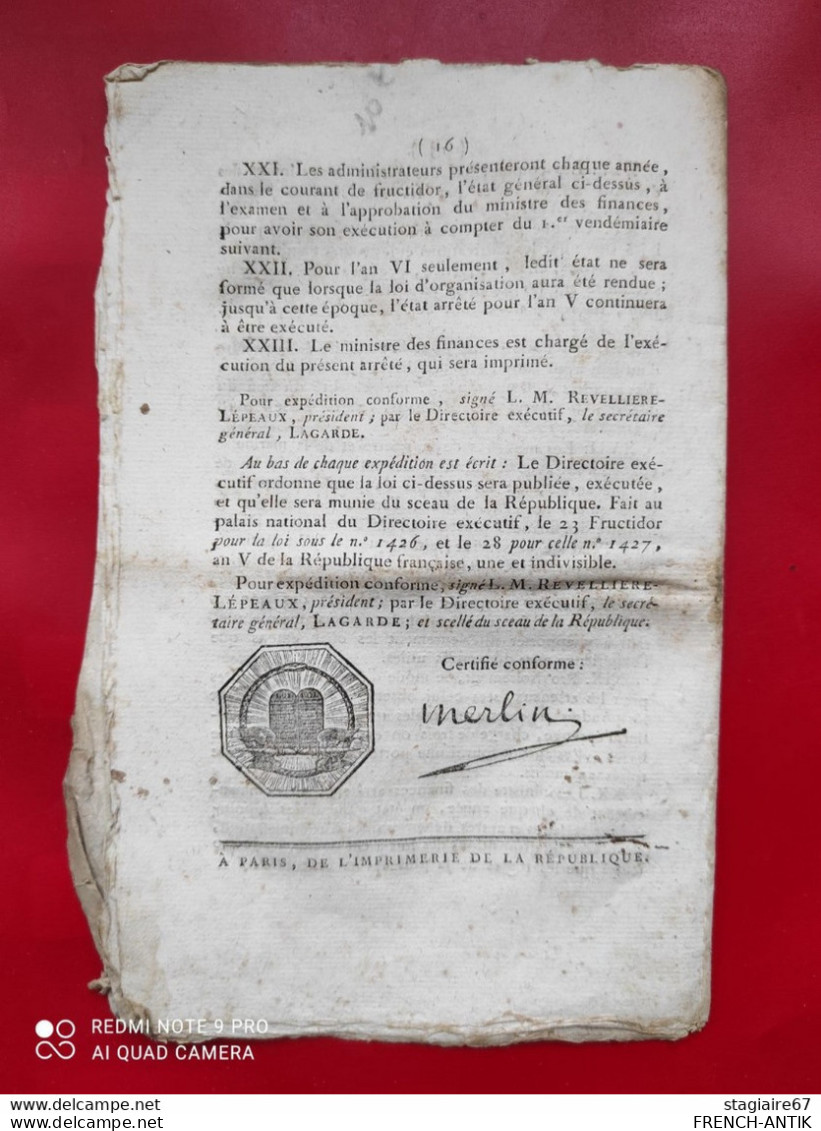 ( 16 )
XXI. Les administrateurs présenteront chaque année,
dans le courant de fructidor, l'état général ci-dessus, à
l'examen et à l'approbation du ministre des finances,
pour avoir son exécution à compter du 1.er vendémiaire
suivant.
XXII. Pour l'an VI seulement, ledit état ne sera
formé que lorsque la loi d'organisation aura été rendue;
jusqu'à cette époque, l'état arrêté pour l'an V continuera
à être exécuté.
XXIII. Le ministre des finances est chargé de l'exé-
cution du présent arrêté, qui sera imprimé.
Pour expédition conforme, signé L. M. REVELLIERE-
LÉPEAUX, président; par le Directoire exécutif, le secrétaire
général, LAGARDE.
Au bas de chaque expédition est écrit: Le Directoire exé-
cutif ordonne que la loi ci-dessus sera publiée, exécutée,
et qu'elle sera munie du sceau de la République. Fait au
palais national du Directoire exécutif, le 23 Fructidor
pour la loi sous le n.º 1426, et le 28 pour celle n.º 1427,
an V de la République française, une et indivisible.
Pour expédition conforme, signé L. M. REVELLIERE-
LÉPEAUX, président; par le Directoire exécutif, le secré-
taire général, LAGARDE; et scellé du sceau de la République.
Certifié conforme:
merlin
À PARIS, DE L'IMPRIMERIE DE LA RÉPUBLIQUE.
REDMI NOTE 9 PRO
AI QUAD CAMERA
www.delcampe.net
www.delcampe.net
stagiaire67
FRENCH-ANTIK